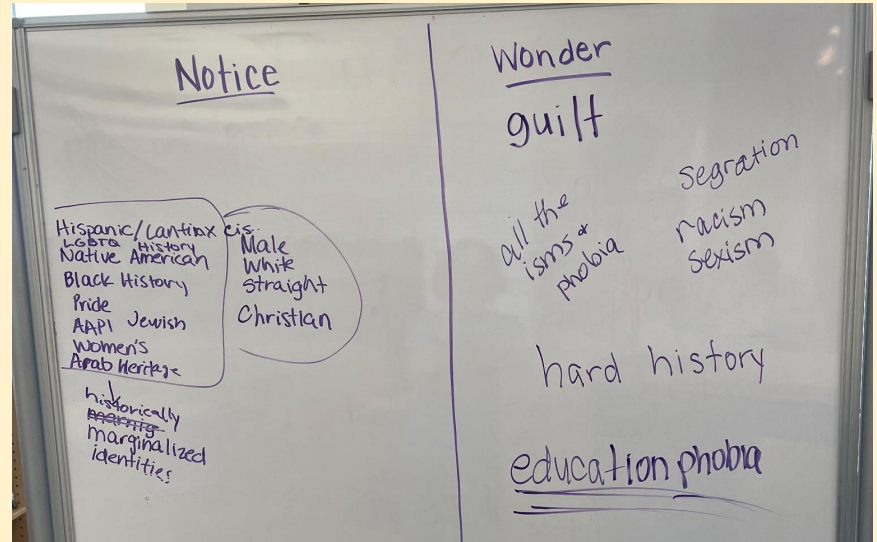 Notice
Hispanic/Lantinx
LGBTQ History
Native American
Black History
Pride
AAPI Jewish
Women's
Arab Heritage
historically
marginalized
identities
cis
Male
White
straight
Christian
Wonder
guilt
segration
all the
isms &
phobia
racism
sexism
hard history
educationphobia